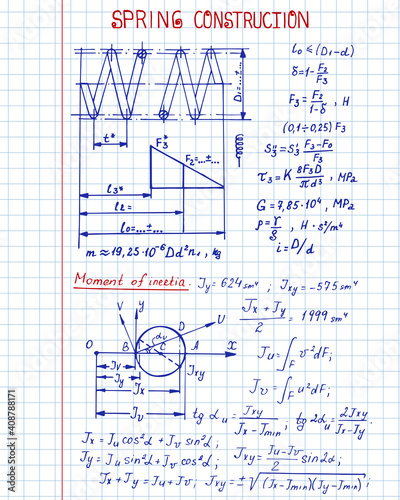 SPRING CONSTRUCTION
l₀ ≤ (D₁-d)
δ=1-F₂/F₃
F₃=F₂/(1-δ), H
(0,1÷0,25) F₃
S₃"=S₃' (F₃-F₀)/F₃
τ₃=K 8F₃D/πd³, MPa
G=7,85·10⁴, MPa
ρ=γ/g, H·s²/m⁴
i=D/d
D₁=...±...
t*
F₃*
F₂=...±...
l₃*
l₂=
l₀=...±...
m≈19,25·10⁻⁶Dd²n₁, kg
Moment of inertia. Jy=624 sm⁴; Jxy=-575 sm⁴
(Jx+Jy)/2=1999 sm⁴
V y D U
αᵤ
O B C A x
Jxy
Jv
Jy
Jx
Jv
Ju=∫F v²dF;
Jv=∫F u²dF;
tg αᵤ=Jxy/(Jx-Jmin); tg2αᵤ=2Jxy/(Jx-Jy).
Jx=Ju cos²α+Jv sin²α;
Jy=Ju sin²α+Jv cos²α; Jxy=(Ju-Jv)/2 sin2α;
Jx+Jy=Ju+Jv; Jxy=±√(Jx-Jmin)(Jy-Jmin);
Adobe Stock | #408788171